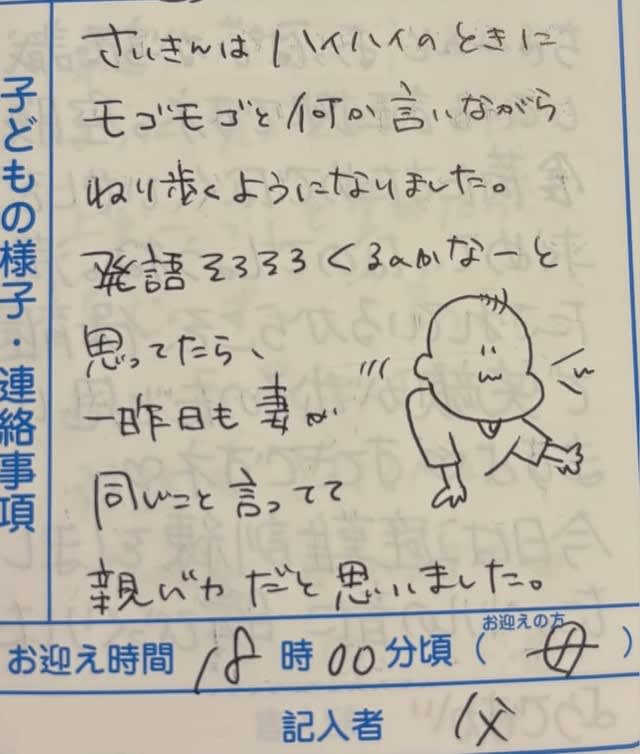 子どもの様子・連絡事項
さいきんはハイハイのときに
モゴモゴと何か言いながら
ねり歩くようになりました。
発語そろそろくるのかなーと
思ってたら、
一昨日も妻が
同じこと言ってて
親バカだと思いました。
お迎え時間 18時00分頃(お迎えの方 母)
記入者 父